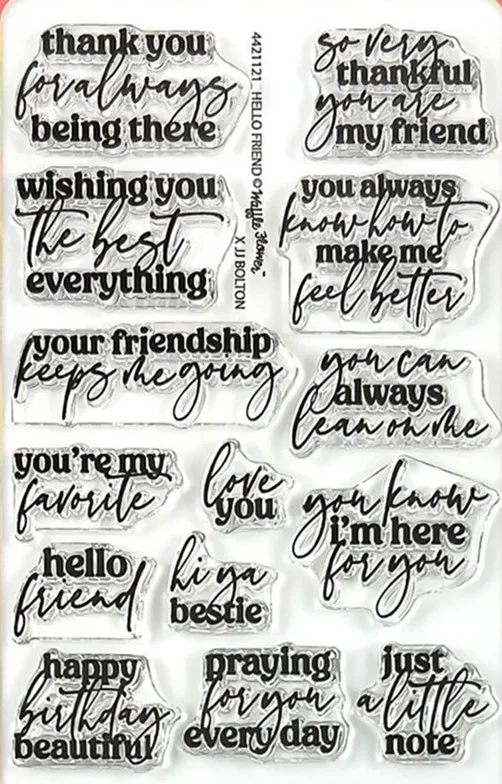 thank you
for always
being there
4421121 HELLO FRIEND © Waffle Flower™
X JJ BOLTON
so very
thankful
you are
my friend
wishing you
the best
everything
you always
know how to
make me
feel better
your friendship
keeps me going
you can
always
lean on me
you're my
favorite
love
you
you know
i'm here
for you
hello
friend
hi ya
bestie
happy
birthday
beautiful
praying
for you
every day
just
a little
note